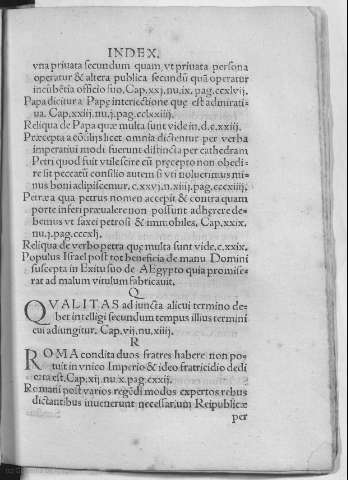 INDEX.
vna priuata secundum quam vt priuata persona
operatur & altera publica secundũ quã operatur
incũbẽtia officio suo. Cap.xxj.nu.ix.pag.ccxlvij.
Papa dicitur a Pape interiectione quę est admirati-
ua. Cap.xxiij.nu.j.pag.cclxxiiij.
Reliqua de Papa quæ multa sunt vide in.d.c.xxiij.
Præcepta a cõsilijs licet omnia dictentur per verba
imperatiui modi fuerunt distincta per cathedram
Petri quod fuit vtilescire cũ pręcepto non obedi-
re sit peccatũ consilio autem si vti noluerimus mi-
nus boni adipiscemur. c.xxvj.n.xiij.pag.cccxiiij.
Petræ a qua petrus nomen accepit & contra quam
porte inferi præualere non possunt adhęrere de-
bemus vt saxei petrosi & immobiles. Cap.xxix.
nu.j.pag.cccxlj.
Reliqua de verbo petra quę multa sunt vide.c.xxix.
Populus Israel post tot beneficia de manu Domini
suscepta in Exitu suo de AEgypto quia promise-
rat ad malum vitulum fabricauit.
Q
QVALITAS adiuncta alicui termino de-
bet intelligi secundum tempus illius termini
cui adiungitur. Cap.vij.nu.xiij.
R
ROMA condita duos fratres habere non po-
tuit in vnico Imperio & ideo fratricidio dedi
cata est. Cap.xij.nu.x.pag.cxxij.
Romani post varios regẽdi modos expertos rebus
dictantibus inuenerunt necessarium Reipublicæ
per